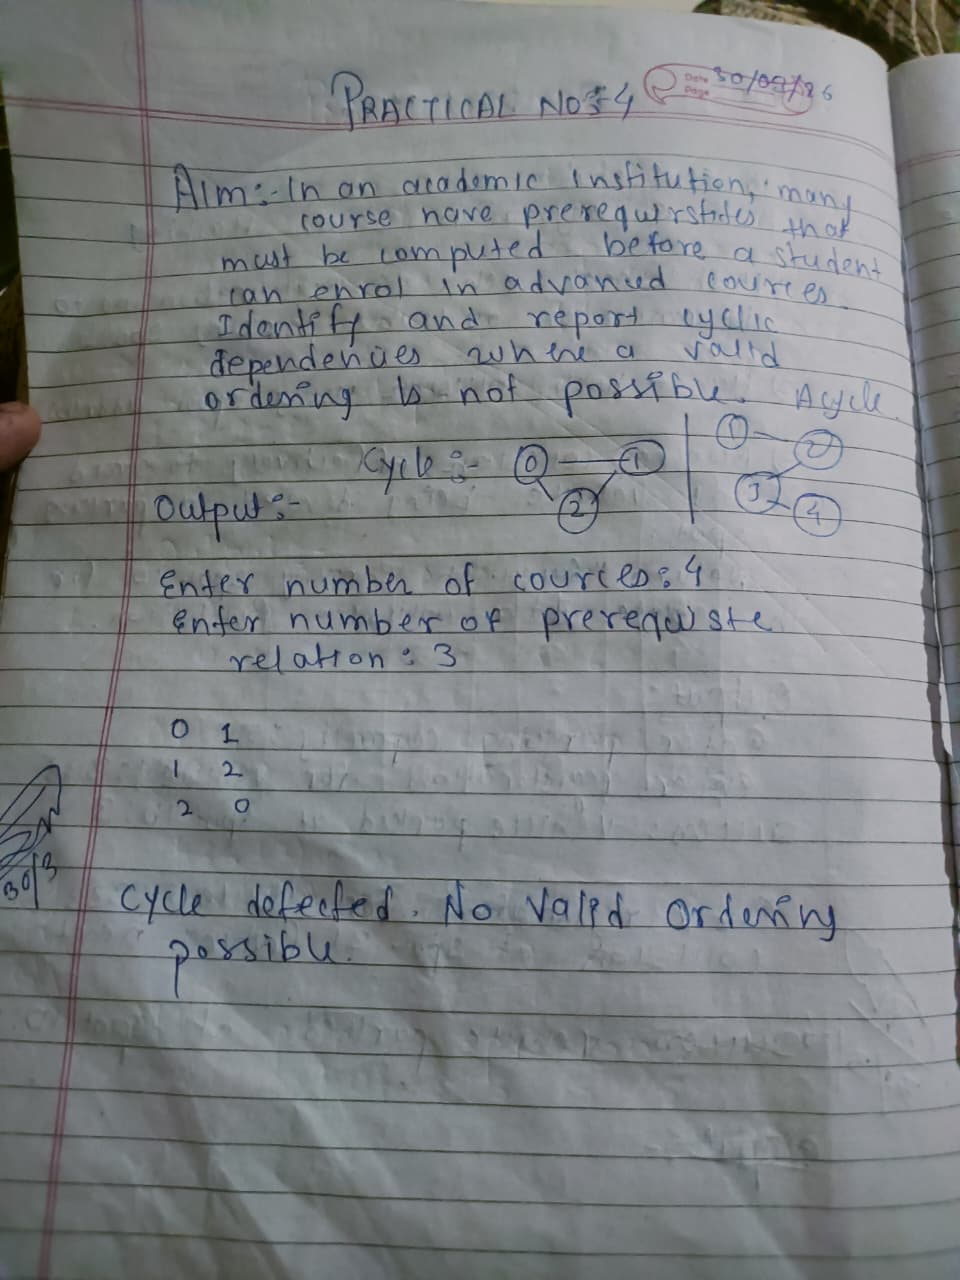 PRACTICAL NO:-4
Date 30/03/26
Page
Aim:- In an academic institution, many
course have prerequirstides that
must be computed before a student
can enrol in advanced cources.
Identify and report cyclic
dependencies where a valid
ordering is not possible. Acycle
Cycle :- 0 1 2
1 2 3 4
Output:-
Enter number of cources: 4
Enter number of prerequiste
relation: 3
0 1
1 2
2 0
30/3
Cycle defected. No Valid Ordering
possible.